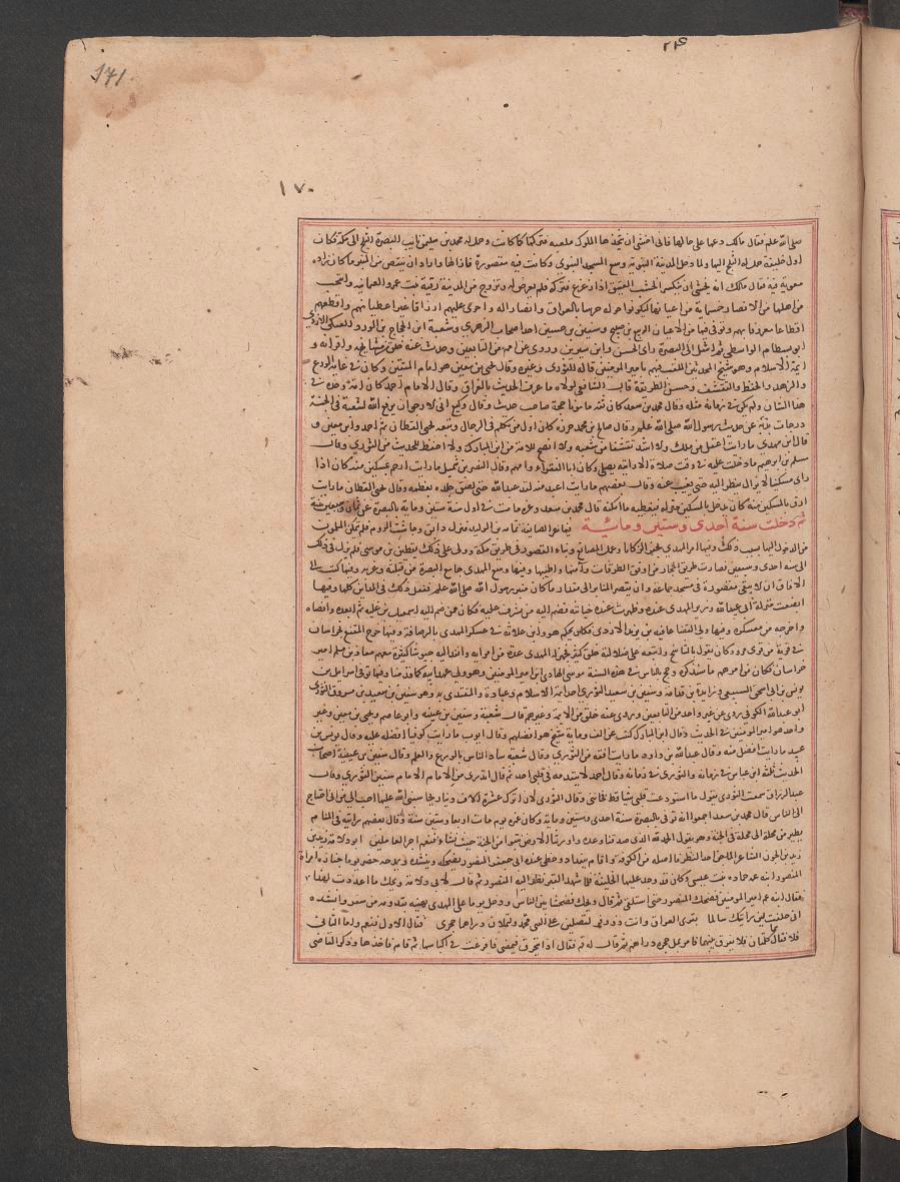 171
١٧٠
صلى الله عليه فقال مالك دعها على حالها فانى اخشى ان يتخذها الملوك ملعبه فتركها كما كانت وحمل له محمد بن سليمن نايب البصرة الثلج الى مكة فكان
اول خليفة حمل له الثلج اليها ولما دخل المدينة النبوية وسع المسجد النبوى وكانت فيه مقصورة فازالها واراد ان ينقص من المنبر ما كان زاده
معوية فيه فقال مالك انه يخشى ان ينكسر الخشب العتيق اذا زعزع فتركه فلم يعرض له وتزوج من المدينة رقية بنت عمرو العثمانيه وانتخب
من اهلها من الانصار خمسماية من اعيانها ليكونوا حوله حرسا بالعراق وانصارا له واجرى عليهم ارزاقا غير اعطياتهم واقطعهم
اقطاعا معروفا بهم وتوفى فيها من الاعيان الربيع بن صبيح وسفين بن حسين احد اصحاب الزهرى وشعبة ابن الحجاج بن الورد العتكى الازدى
ابو بسطام الواسطى ثم انتقل الى البصرة راى الحسن وابن سيرين وروى عن امم من التابعين وحدث عنه خلق من مشايخه واقرانه و
ايمة الاسلام وهو شيخ المحدثين الملقب فيهم بامير المومنين قاله الثورى وغيره وقال يحيى بن معين هو امام المتقين وكان فى غاية الورع
والزهد والحفظ والتقشف وحسن الطريقة قال الشافعى لولاه ما عرف الحديث بالعراق وقال الامام احمد كان امة وحده فى
هذا الشان ولم يكن فى زمانه مثله وقال محمد بن سعد كان ثقة مامونا حجة صاحب حديث وقال وكيع انى لارجو ان يرفع الله لشعبة فى الجنة
درجات بذبه عن حديث رسول الله صلى الله عليه وقال صالح بن محمد جزره كان اول من تكلم فى الرجال وتبعه يحيى القطان ثم احمد وابن معين و
قال ابن مهدى ما رايت اعقل من ملك ولا اشد تقشفا من شعبه ولا انصح للامة من ابن المبارك ولا احفظ للحديث من الثورى وقال
مسلم بن ابرهيم ما دخلت عليه فى وقت صلاة الا رايته يصلى وكان ابا الفقراء وامهم وقال النضر بن شميل ما رايت ارحم بمسكين منه كان اذا
راى مسكينا لا يزال ينظر اليه حتى يغيب عنه وقال بعضهم ما رايت اعبد منه لقد عبد الله حتى لصق جلده بعظمه وقال يحيى القطان ما رايت
ارق بالمسكين منه كان يدخل بالمسكين منزله فيعطيه ما امكنه قال محمد بن سعد وغيره مات فى اول سنة ستين وماية بالبصرة عن ثمان وسبعين سنة
ثم دخلت سنة احدى وستين ومائة فيها غزا الصائفة ثمامة بن الوليد فنزل دابق وجاشت الروم فلم يتمكن المسلمون
من الدخول اليها بسبب ذلك وفيها امر المهدى بحفر الركايا وعمل المصانع وبناء القصور فى طريق مكة وولى على ذلك يقطين بن موسى فلم يزل فى ذلك
الى سنة احدى وسبعين فصارت طريق الحجاز من ارفق الطرقات وآمنها واطيبها وفيها وسع المهدى جامع البصرة من قبلته وغربه وفيها كتب الى
الافاق ان لا يبقى مقصورة فى مسجد جماعة وان يقصر المنابر الى مقدار ما كان منبر رسول الله صلى الله عليه ففعل ذلك فى المداين كلها وفيها
اتضعت منزلة ابى عبيد الله وزير المهدى عنده وظهرت عنده خيانته فضم اليه من يشرف عليه فكان ممن ضم اليه اسمعيل بن علية ثم ابعده واقصاه
واخرجه من معسكره وفيها ولى القضا عافية بن يزيد الازدى فكان يحكم هو وابن علاثة فى عسكر المهدى بالرصافة وفيها خرج المقنع بخراسان
فى قرية من قرى مرو وكان يقول بالتناسخ واتبعه على ضلالته خلق كثير فجهز له المهدى عدة من امرائه وانفذ اليه جيوشا كثيرة منهم معاذ بن مسلم امير
خراسان فكان من امرهم ما سنذكره وحج بالناس فى هذه السنة موسى الهادى ابن امير المومنين وهو ولى عهد ابيه كما قدمنا وفيها توفى اسرائيل بن
يونس بن ابى اسحق السبيعى وزايدة بن قدامة وسفين بن سعيد الثورى احد ايمة الاسلام وعباده والمقتدى به وهو سفين بن سعيد بن مسروق الثورى
ابو عبد الله الكوفى روى عن غير واحد من التابعين وروى عنه خلق من الايمة وغيرهم قال شعبة وسفين بن عيينه وابو عاصم ويحيى بن معين وغير
واحد هو امير المومنين فى الحديث وقال ابن المبارك كتبت عن الف وماية شيخ هو افضلهم وقال ايوب ما رايت كوفيا افضله عليه وقال يونس بن
عبيد ما رايت افضل منه وقال عبد الله بن داود ما رايت افقه من الثورى وقال شعبة ساد الناس بالورع والعلم وقال سفين بن عيينة اصحاب
الحديث ثلثة ابن عباس فى زمانه والثورى فى زمانه وقال احمد لا يتقدمه فى قلبى احد ثم قال اتدرى من الامام الامام سفين الثورى وقال
عبد الرزاق سمعت الثورى يقول ما استودعت قلبى شيا قط فخاننى وقال الثورى لان اترك عشرة الاف دينار يحاسبنى الله عليها احب الى من ان احتاج
الى الناس قال محمد بن سعد اجمعوا انه توفى بالبصرة سنة احدى وستين وماية وكان عمره يوم مات اربعا وستين سنة وقال بعضهم رايته فى المنام
يطير من نخلة الى نخلة فى الجنة وهو يقول الحمد لله الذى صدقنا وعده واورثنا الارض نتبوا من الجنة حيث نشاء فنعم اجر العاملين ابو دلامة زيد بن
زيد بن الجون الشاعر الماجن احد الظرفا اصله من الكوفة واقام ببغداد وحظى عند ابى جعفر المنصور يضحكه وينشده ويمدحه حضر يوما جنازة امراة
المنصور ابنة عمه حماده بنت عيسى وكان قد وجد عليها الخليفة فلما شهد القبر نظر اليه المنصور ثم قال لابى دلامة ويحك ما اعددت لهذا
فقال ابنة عم امير المومنين فضحك المنصور حتى استلقى ثم قال ويحك فضحتنا بين الناس ودخل يوما على المهدى يهنيه بقدومه من سفر وانشده
انى حلفت لئن رايتك سالما بقرى العراق وانت ذو وفر لتصلين على النبى محمد ولتملان دراهما حجرى فقال اما الاول فنعم واما الثانى
فلا فقال كلمتان فلا يفرق بينهما فامر بمل حجره دراهم ثم قال له قم فقال اذا يتخرق قميصى فافرغت فى اكياسها ثم قام فاخذها وذكر القاضى